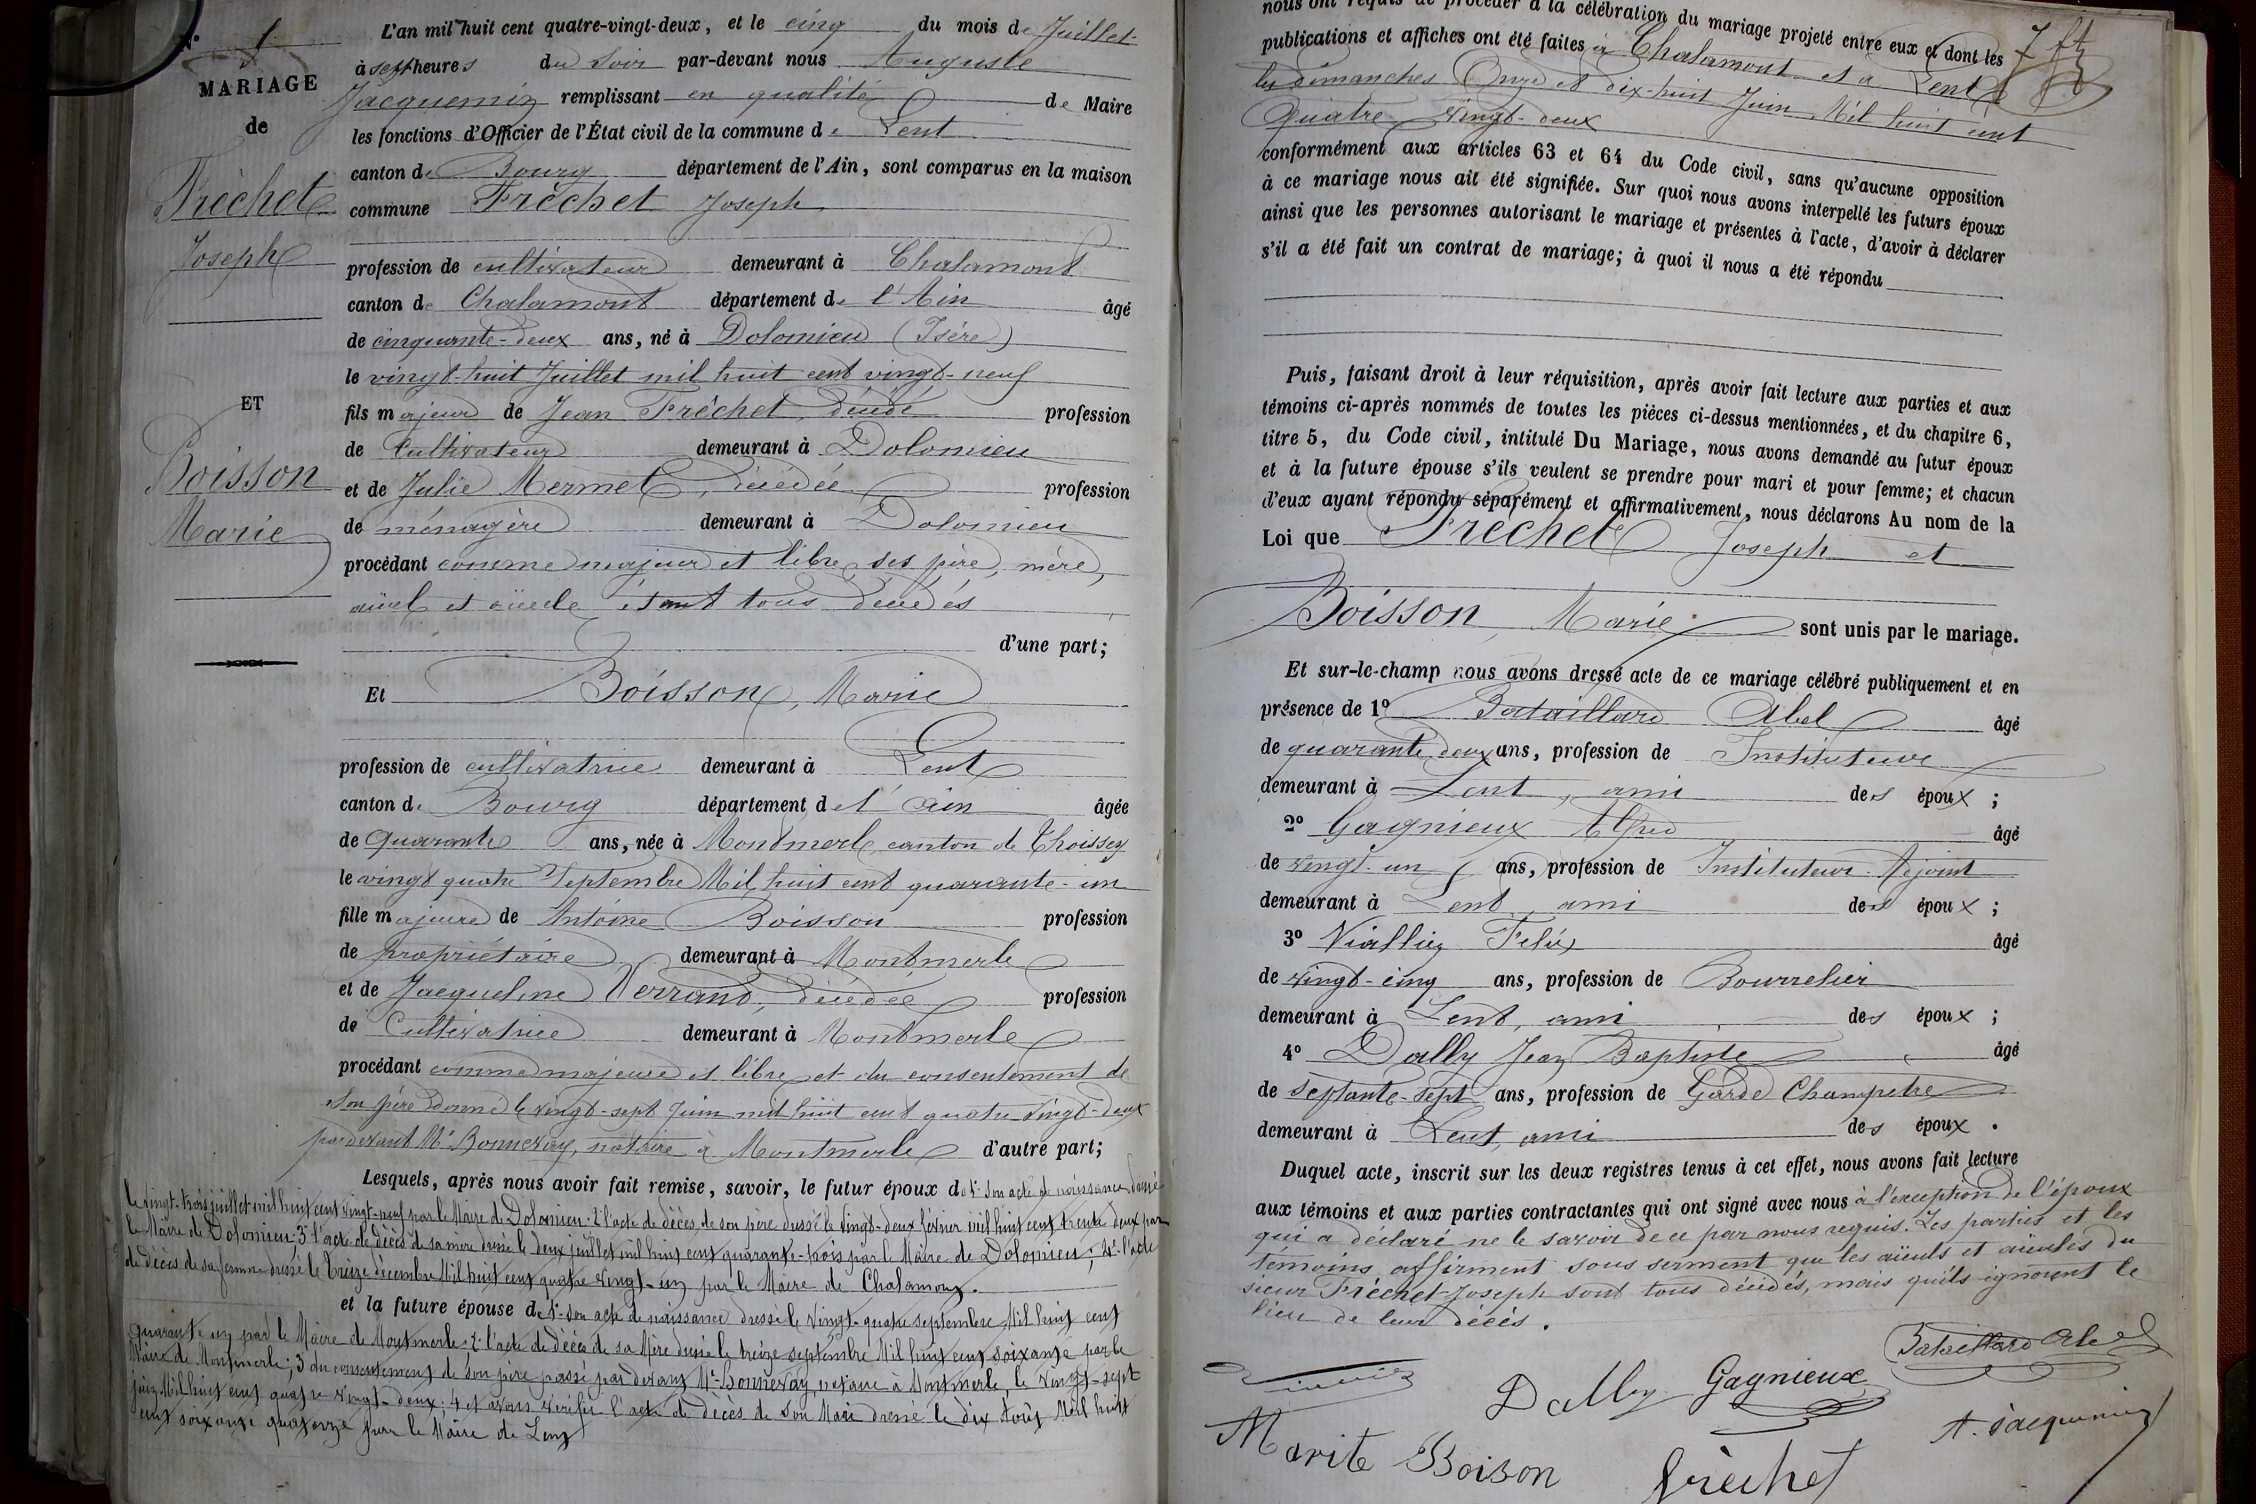 N° 1
MARIAGE
de
Fréchet
Joseph
ET
Boisson
Marie
L'an mil huit cent quatre-vingt-deux, et le cinq du mois de Juillet
à sept heures du Soir par-devant nous Auguste
Jacquemin remplissant en qualité de Maire
les fonctions d'Officier de l'État civil de la commune de Lent
canton de Bourg département de l'Ain, sont comparus en la maison
commune Fréchet Joseph
profession de cultivateur demeurant à Chalamont
canton de Chalamont département de l'Ain âgé
de cinquante-deux ans, né à Dolomieu (Isére)
le vingt-huit Juillet mil huit cent vingt-neuf
fils majeur de Jean Fréchet, décédé profession
de Cultivateur demeurant à Dolomieu
et de Julie Mermet, décédée profession
de ménagère demeurant à Dolomieu
procédant comme majeur et libre, ses père, mère,
aïeul et aïeule étant tous décédés
d'une part;
Et Boisson, Marie
profession de cultivatrice demeurant à Lent
canton de Bourg département de l'Ain âgée
de Quarante ans, née à Montmerle canton de Thoissey
le vingt quatre Septembre Mil huit cent quarante-un
fille majeure de Antoine Boisson profession
de propriétaire demeurant à Montmerle
et de Jacqueline Verrand, décédée profession
de Cultivatrice demeurant à Montmerle
procédant comme majeure et libre et du consentement de
son père donné le vingt-sept Juin mil huit cent quatre vingt-deux
pardevant Mr Bonnevay, notaire à Montmerle d'autre part;
Lesquels, après nous avoir fait remise, savoir, le futur époux de 1° son acte de naissance dressé
le vingt-trois juillet mil huit cent vingt-neuf par le Maire de Dolomieu: 2° l'acte de décès de son père dressé le vingt-deux février mil huit cent trente deux par
le Maire de Dolomieu; 3° l'acte de décès de sa mère dressé le deux juillet mil huit cent quarante-trois par le Maire de Dolomieu; 4° l'acte
de décès de sa femme dressé le treize décembre Mil huit cent quatre vingt-un par le Maire de Chalamont.
et la future épouse de 1° son acte de naissance dressé le vingt-quatre septembre Mil huit cent
quarante un par le Maire de Montmerle 2° l'acte de décès de sa Mère dressé le treize septembre Mil huit cent soixante par le
Maire de Montmerle; 3° du consentement de son père passé par devant Mr Bonnevay, notaire à Montmerle, le vingt-sept
juin Mil huit cent quatre vingt-deux; 4° et avons vérifié l'acte de décès de son Mari dressé le dix Août Mil huit
cent soixante quatorze par le Maire de Lent
nous ont requis de procéder à la célébration du mariage projeté entre eux et dont les
publications et affiches ont été faites à Chalamont et à Lent
les dimanches Onze et dix-huit Juin Mil huit cent
Quatre vingt-deux
conformément aux articles 63 et 64 du Code civil, sans qu'aucune opposition
à ce mariage nous ait été signifiée. Sur quoi nous avons interpellé les futurs époux
ainsi que les personnes autorisant le mariage et présentes à l'acte, d'avoir à déclarer
s'il a été fait un contrat de mariage; à quoi il nous a été répondu
Puis, faisant droit à leur réquisition, après avoir fait lecture aux parties et aux
témoins ci-après nommés de toutes les pièces ci-dessus mentionnées, et du chapitre 6,
titre 5, du Code civil, intitulé Du Mariage, nous avons demandé au futur époux
et à la future épouse s'ils veulent se prendre pour mari et pour femme; et chacun
d'eux ayant répondu séparément et affirmativement, nous déclarons Au nom de la
Loi que Fréchet Joseph et
Boisson Marie sont unis par le mariage.
Et sur-le-champ nous avons dressé acte de ce mariage célébré publiquement et en
présence de 1° Bataillard Abel âgé
de quarante deux ans, profession de Instituteur
demeurant à Lent, ami des époux;
2° Gagnieux Alfred âgé
de vingt-un ans, profession de Instituteur Adjoint
demeurant à Lent, ami des époux;
3° Viallier Félix âgé
de vingt-cinq ans, profession de Bourrelier
demeurant à Lent, ami des époux;
4° Dally Jean Baptiste âgé
de septante-sept ans, profession de Garde Champetre
demeurant à Lent, ami des époux.
Duquel acte, inscrit sur les deux registres tenus à cet effet, nous avons fait lecture
aux témoins et aux parties contractantes qui ont signé avec nous à l'exception de l'époux
qui a déclaré ne le savoir de ce par nous requis. Les parties et les
témoins affirment sous serment que les aïeuls et aïeules du
sieur Fréchet Joseph sont tous décédés, mais qu'ils ignorent le
lieu de leur décès.
Bataillard Abel
Dally Gagnieux
A. Jacquemin
Marite Boison Frèchet